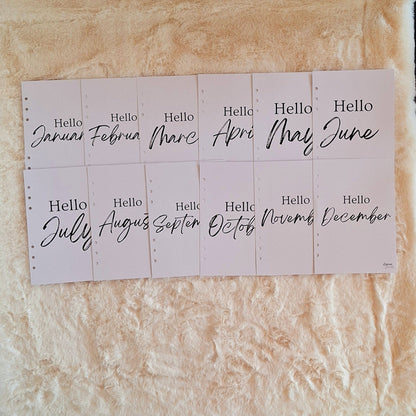 Hello
Januar
Hello
Februa
Hello
Marc
Hello
Apri
Hello
May
Hello
June
Hello
July
Hello
Augus
Hello
Septem
Hello
Octob
Hello
Novemb
Hello
December